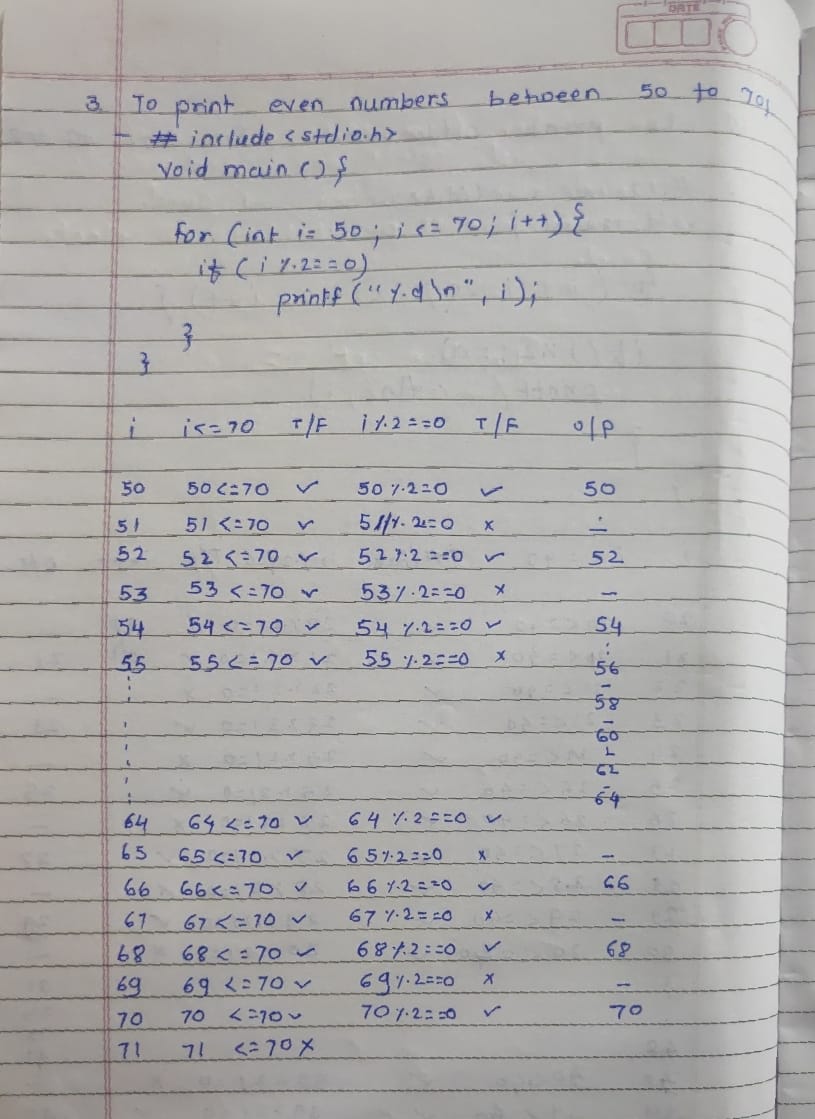 DATE
3. To print even numbers between 50 to 70.
# include <stdio.h>
void main () {
for (int i = 50 ; i <= 70 ; i++) {
if ( i %.2 == 0)
printf (" %.d \n ", i);
}
}
i i<=70 T/F i%.2==0 T/F o/p
50 50<=70 ✓ 50 %.2=0 ✓ 50
51 51 <=70 ✓ 51%.2=0 x -
52 52 <=70 ✓ 52%.2==0 ✓ 52
53 53 <=70 ✓ 53%.2==0 x -
54 54 <=70 ✓ 54 %.2==0 ✓ 54
55 55 <= 70 ✓ 55 %.2==0 x
56
-
58
-
60
-
62
-
64
64 64 <=70 ✓ 64 %.2==0 ✓
65 65 <=70 ✓ 65%.2==0 x -
66 66<=70 ✓ 66 %.2==0 ✓ 66
67 67 <=70 ✓ 67 %.2==0 x -
68 68 <= 70 ✓ 68%.2==0 ✓ 68
69 69 <=70 ✓ 69%.2==0 x -
70 70 <=70 ✓ 70%.2==0 ✓ 70
71 71 <=70 x